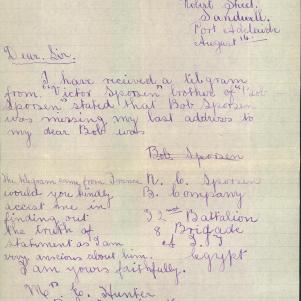 Robert Street.
Sandwell.
Port Adelaide
August 14th.
Dear Sir
I have recieved a telegram
from "Victor Sporsen" brother of "Bob
Sporsen" stated that Bob Sporsen
was missing my last address to
my dear Bob was
Bob Sporsen
The telegram came from France N. C. Sporsen
would you kindly B. Company
accest me in
finding out 32nd Battalion
the truth of 8 Brigade
statement as I am A I F
very anxious about him. Egypt
I am yours faithfully.
Mrs E. Hunter